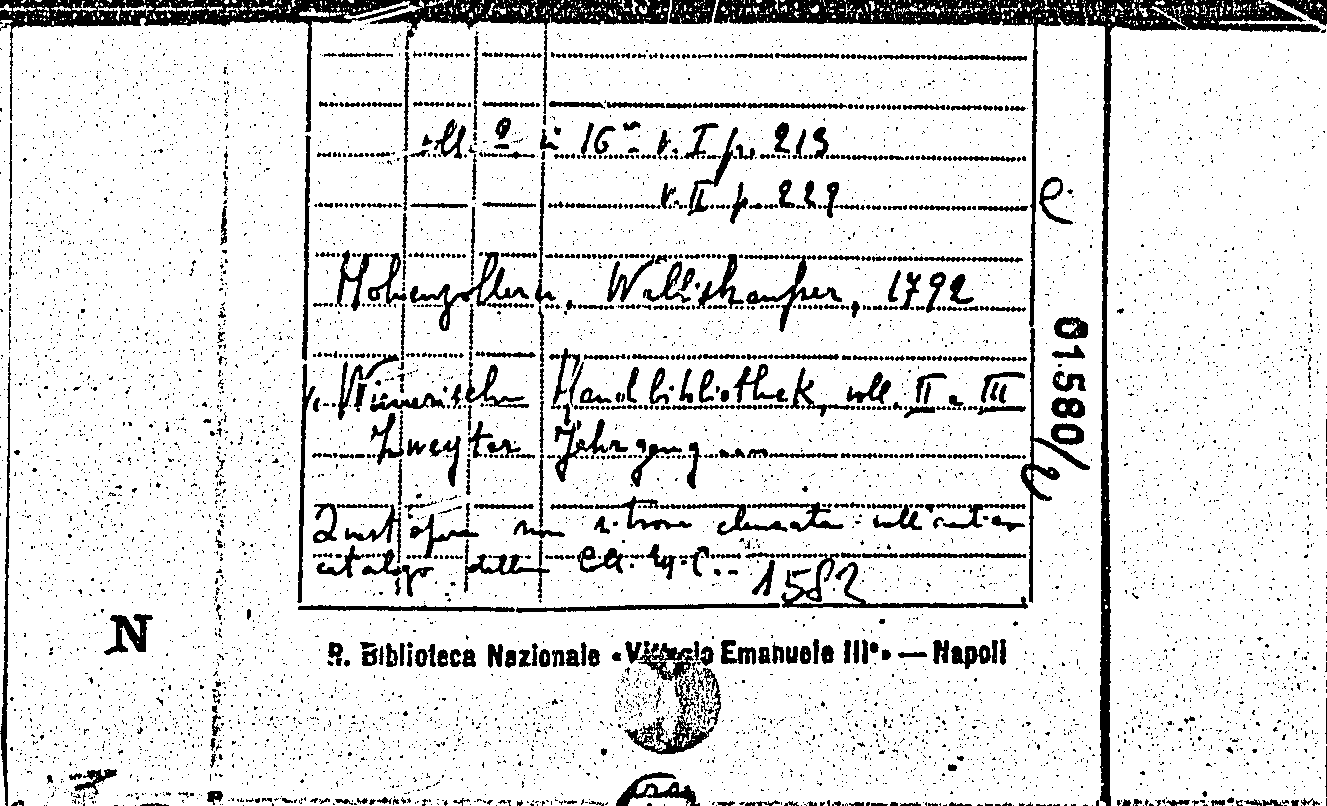 voll. 2 in 16° v. I p. 213
v. II p. 229
e
Hohenzollern, Wallishausser, 1792
v. Wienerische Handbibliothek, voll. II e III
Zweyter Jahrgang
01580/2
Quest'opera non si trova elencata nell'antico
catalogo della
1582
N
R. Biblioteca Nazionale «Vittorio Emanuele III°» — Napoli